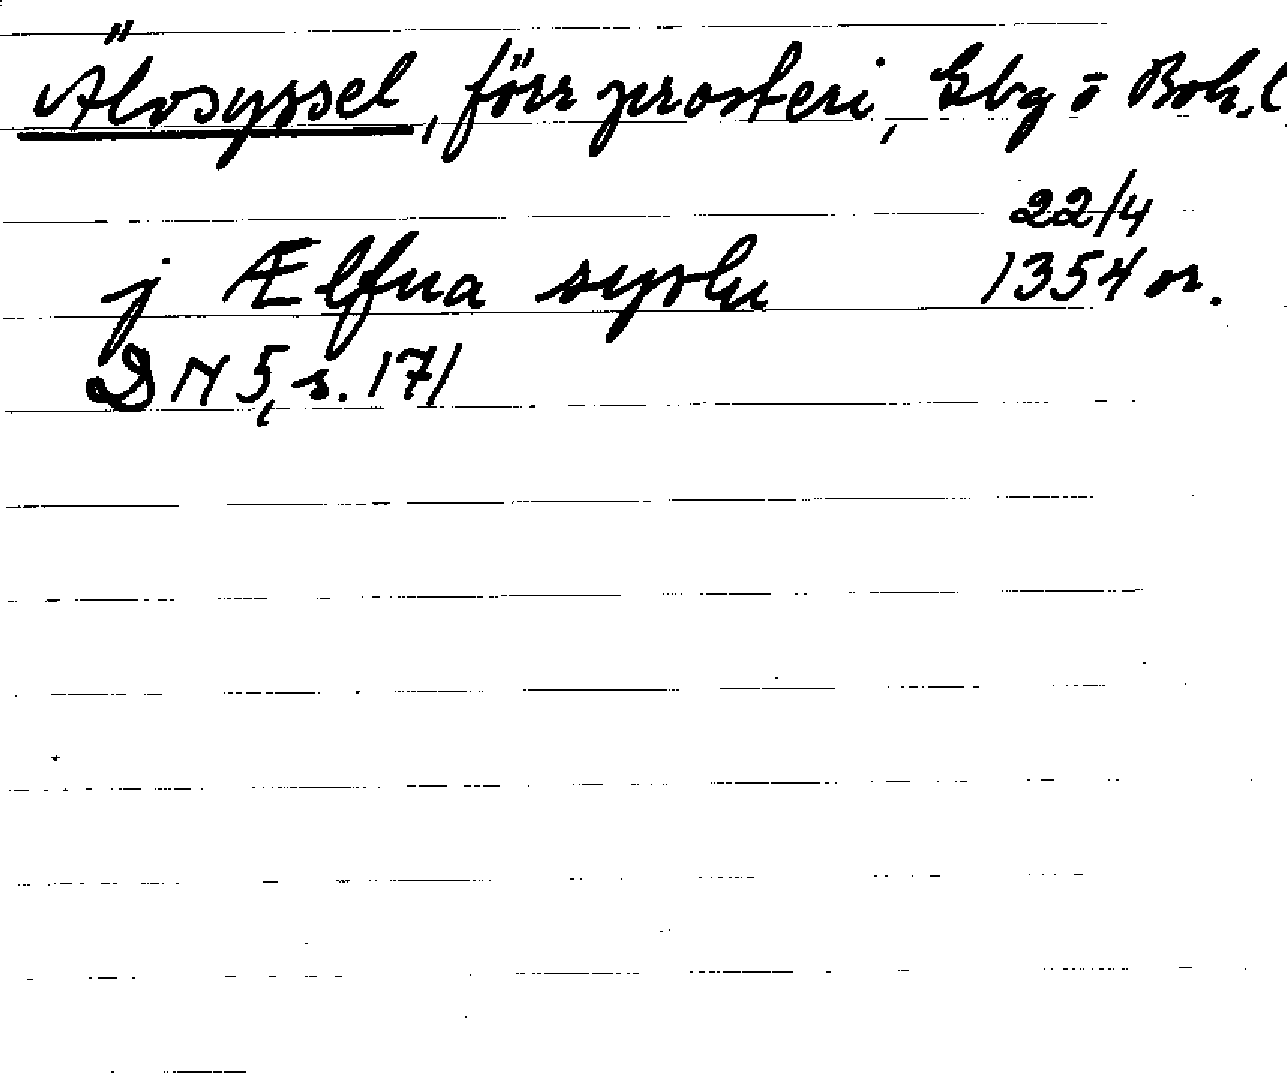 Älvsyssel, förr prosteri, Gbg o Boh.l
22/4
j Ælfua syslu 1354 or.
DN 5, s. 171